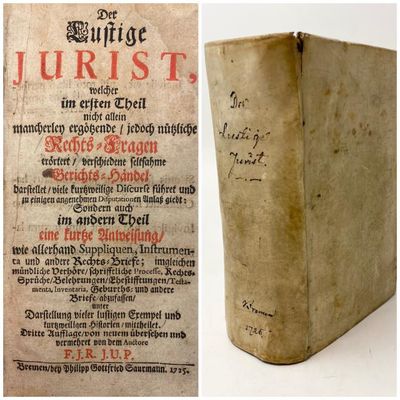 Der
Lustige
JURIST,
welcher
im ersten Theil
nicht allein
mancherley ergötzende / jedoch nützliche
Rechts-Fragen
erörtert / verschiedene seltsahme
Gerichts-Händel
darstellet / viele kurtzweilige Discurse führet und
zu einigen angenehmen Disputationen Anlaß giebt:
Sondern auch
im andern Theil
eine kurtze Anweisung /
wie allerhand Suppliquen, Instrumen-
ta und andere Rechts-Briefe; imgleichen
mündliche Verhöre / schriffrliche Processe, Rechts-
Sprüche / Belehrungen / Ehestifftungen / Testa-
menta, Inventaria, Geburths- und andere
Briefe abzufassen /
unter
Darstellung vieler lustigen Exempel und
kurtzweiligen Historien / mittheilet.
Dritte Aufflage / von neuem übersehen und
vermehret von dem Auctore
F. J. R. J. U. P.
Bremen / bey Philipp Gottfried Saurmann. 1725.
Der
Lustige
Jurist.